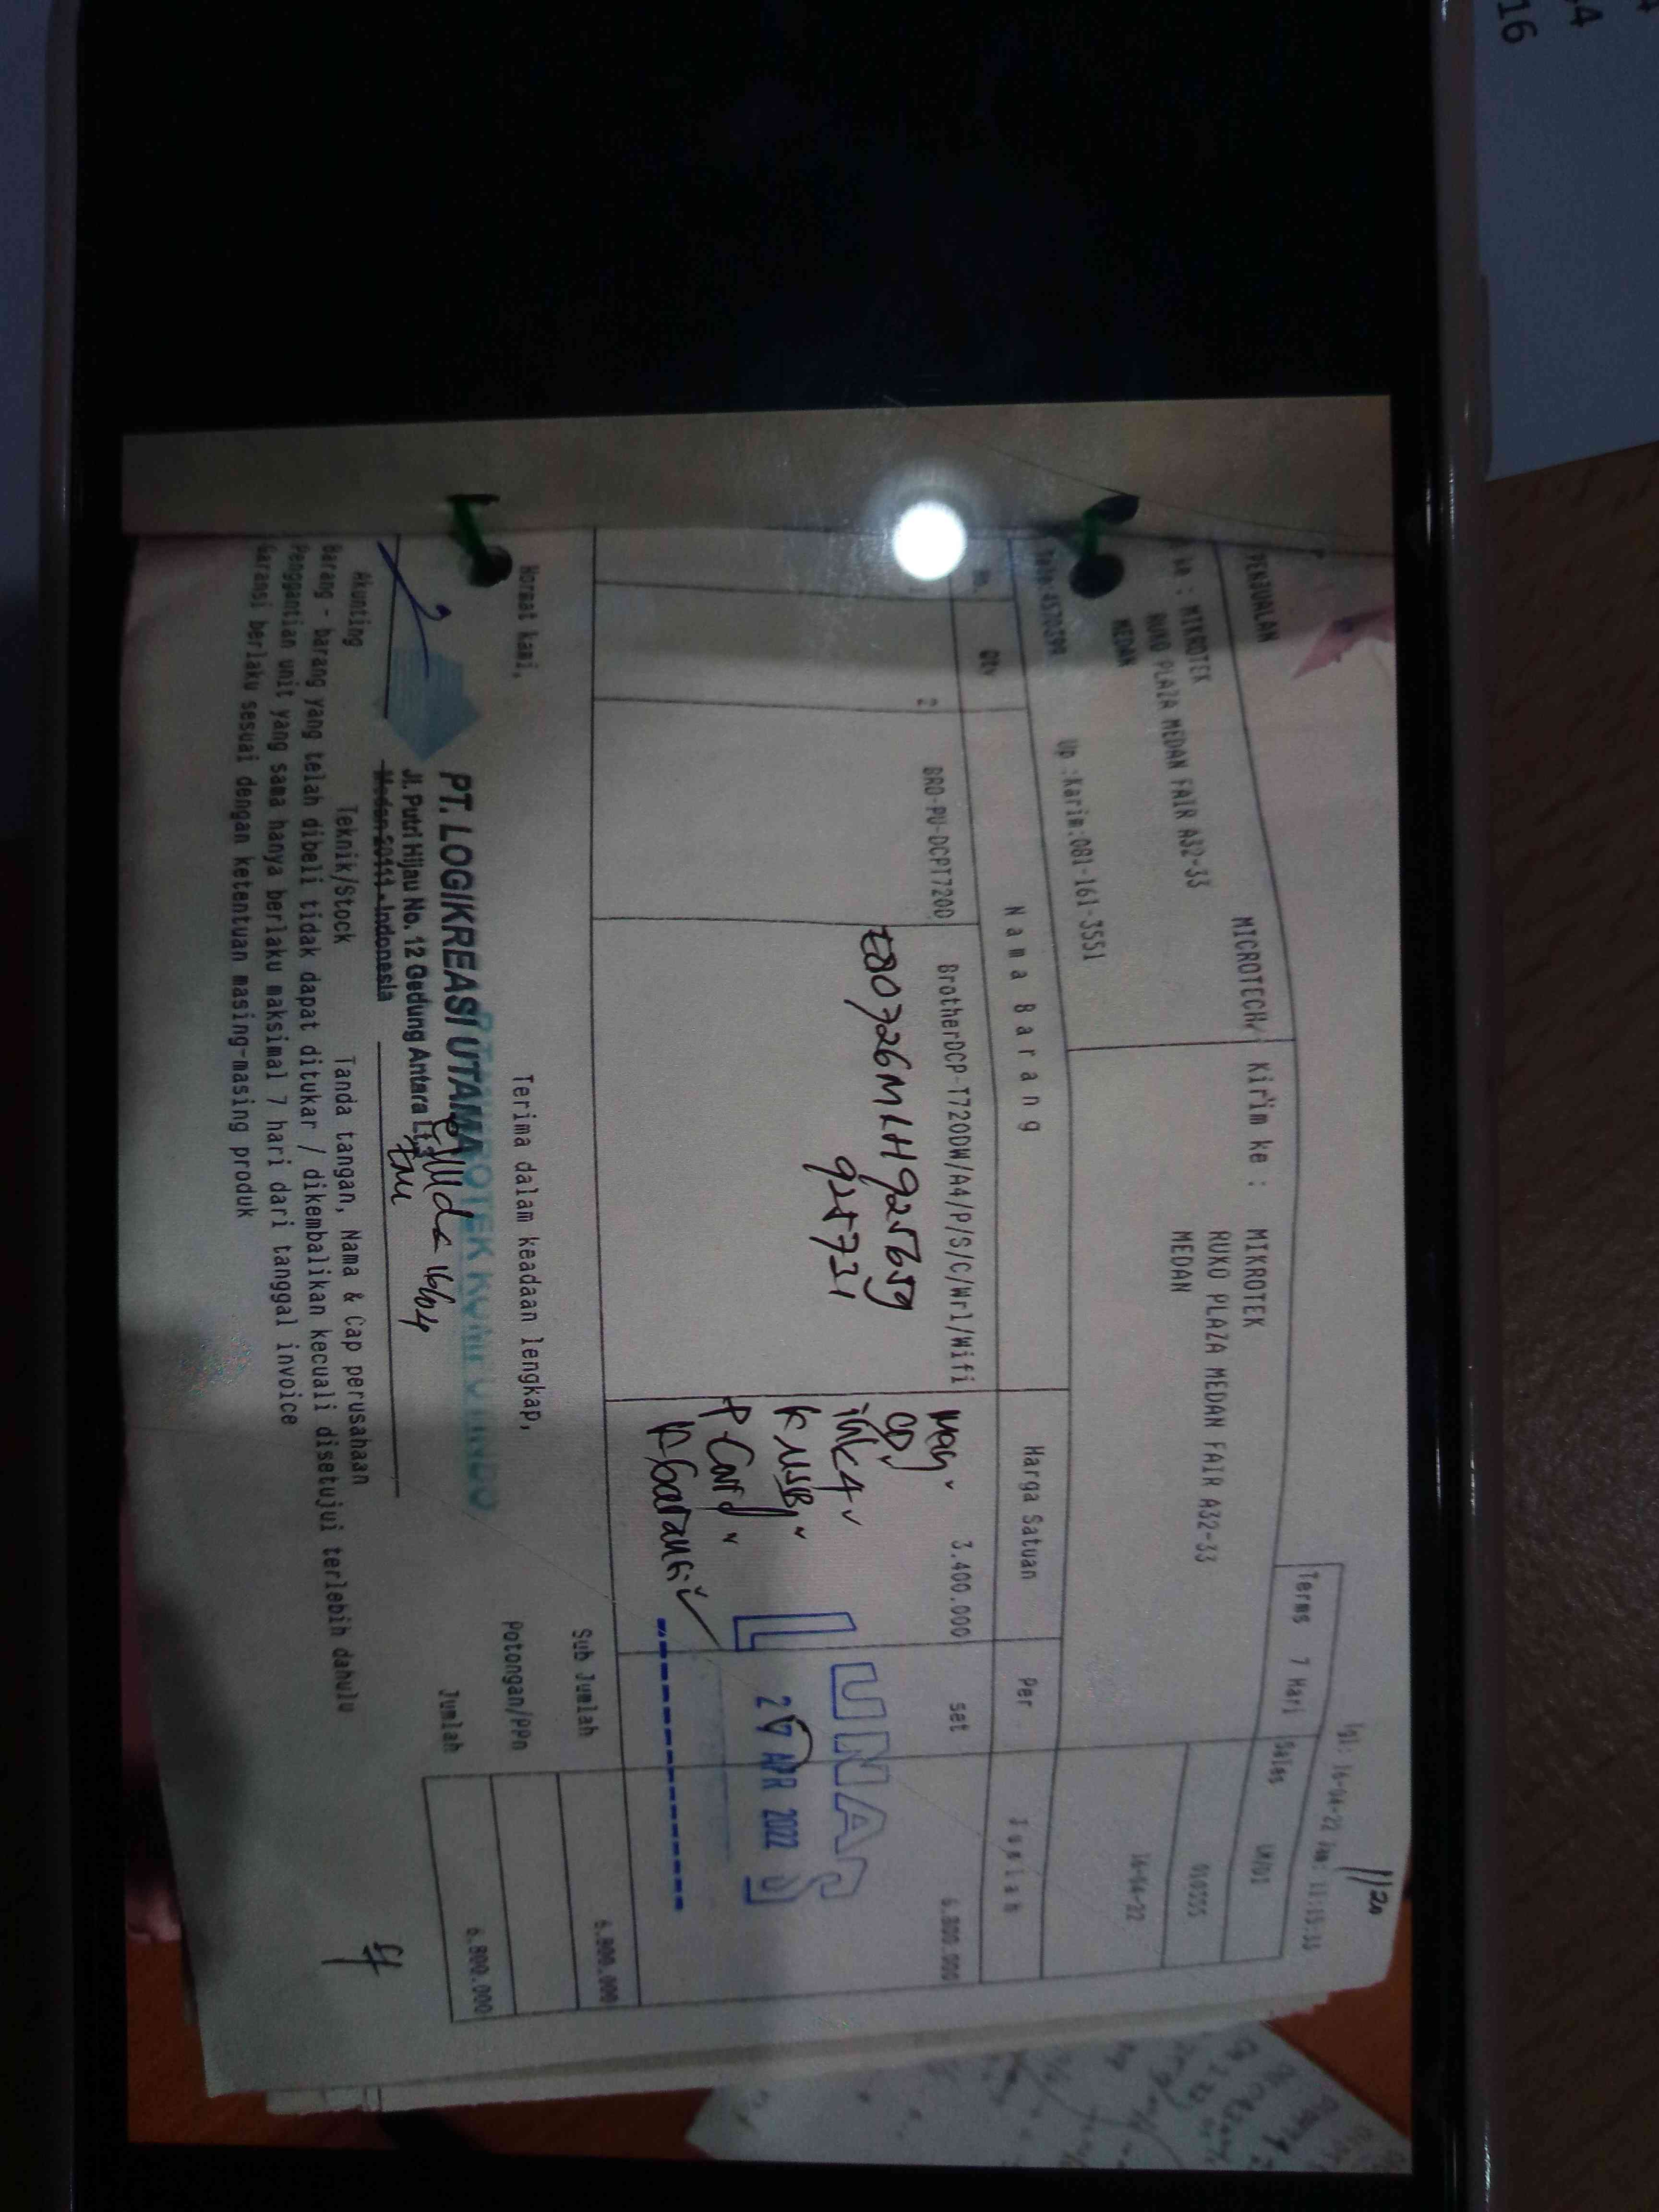 1/20
Tgl: 16-04-22 Jam: 11:15:33
PENJUALAN
MICROTECH/
Terms 7 Hari
Sales
ke : MIKROTEK
RUKO PLAZA MEDAN FAIR A32-33
MEDAN
Kirim ke : MIKROTEK
RUKO PLAZA MEDAN FAIR A32-33
MEDAN
16-04-22
Up :Karim:081-161-3551
No. Qty Nama Barang Harga Satuan Per Jumlah
2 BRO-PU-DCPT720D BrotherDCP-T720DW/A4/P/S/C/Wrl/Wifi 3.400.000 set 6.800.000
925659
925731
CD
ink 4
K USB
P Card
K Garansi
LUNAS
APR 2022
Hormat kami,
Terima dalam keadaan lengkap,
Sub Jumlah 6.800.000
Potongan/PPn
Jumlah 6.800.000
PT. LOGIKREASI UTAMA
Jl. Putri Hijau No. 12 Gedung Antara Lt.3
Medan 20111 - Indonesia
16/04
Akunting Teknik/Stock Tanda tangan, Nama & Cap perusahaan
Barang - barang yang telah dibeli tidak dapat ditukar / dikembalikan kecuali disetujui terlebih dahulu
Penggantian unit yang sama hanya berlaku maksimal 7 hari dari tanggal invoice
Garansi berlaku sesuai dengan ketentuan masing-masing produk
16